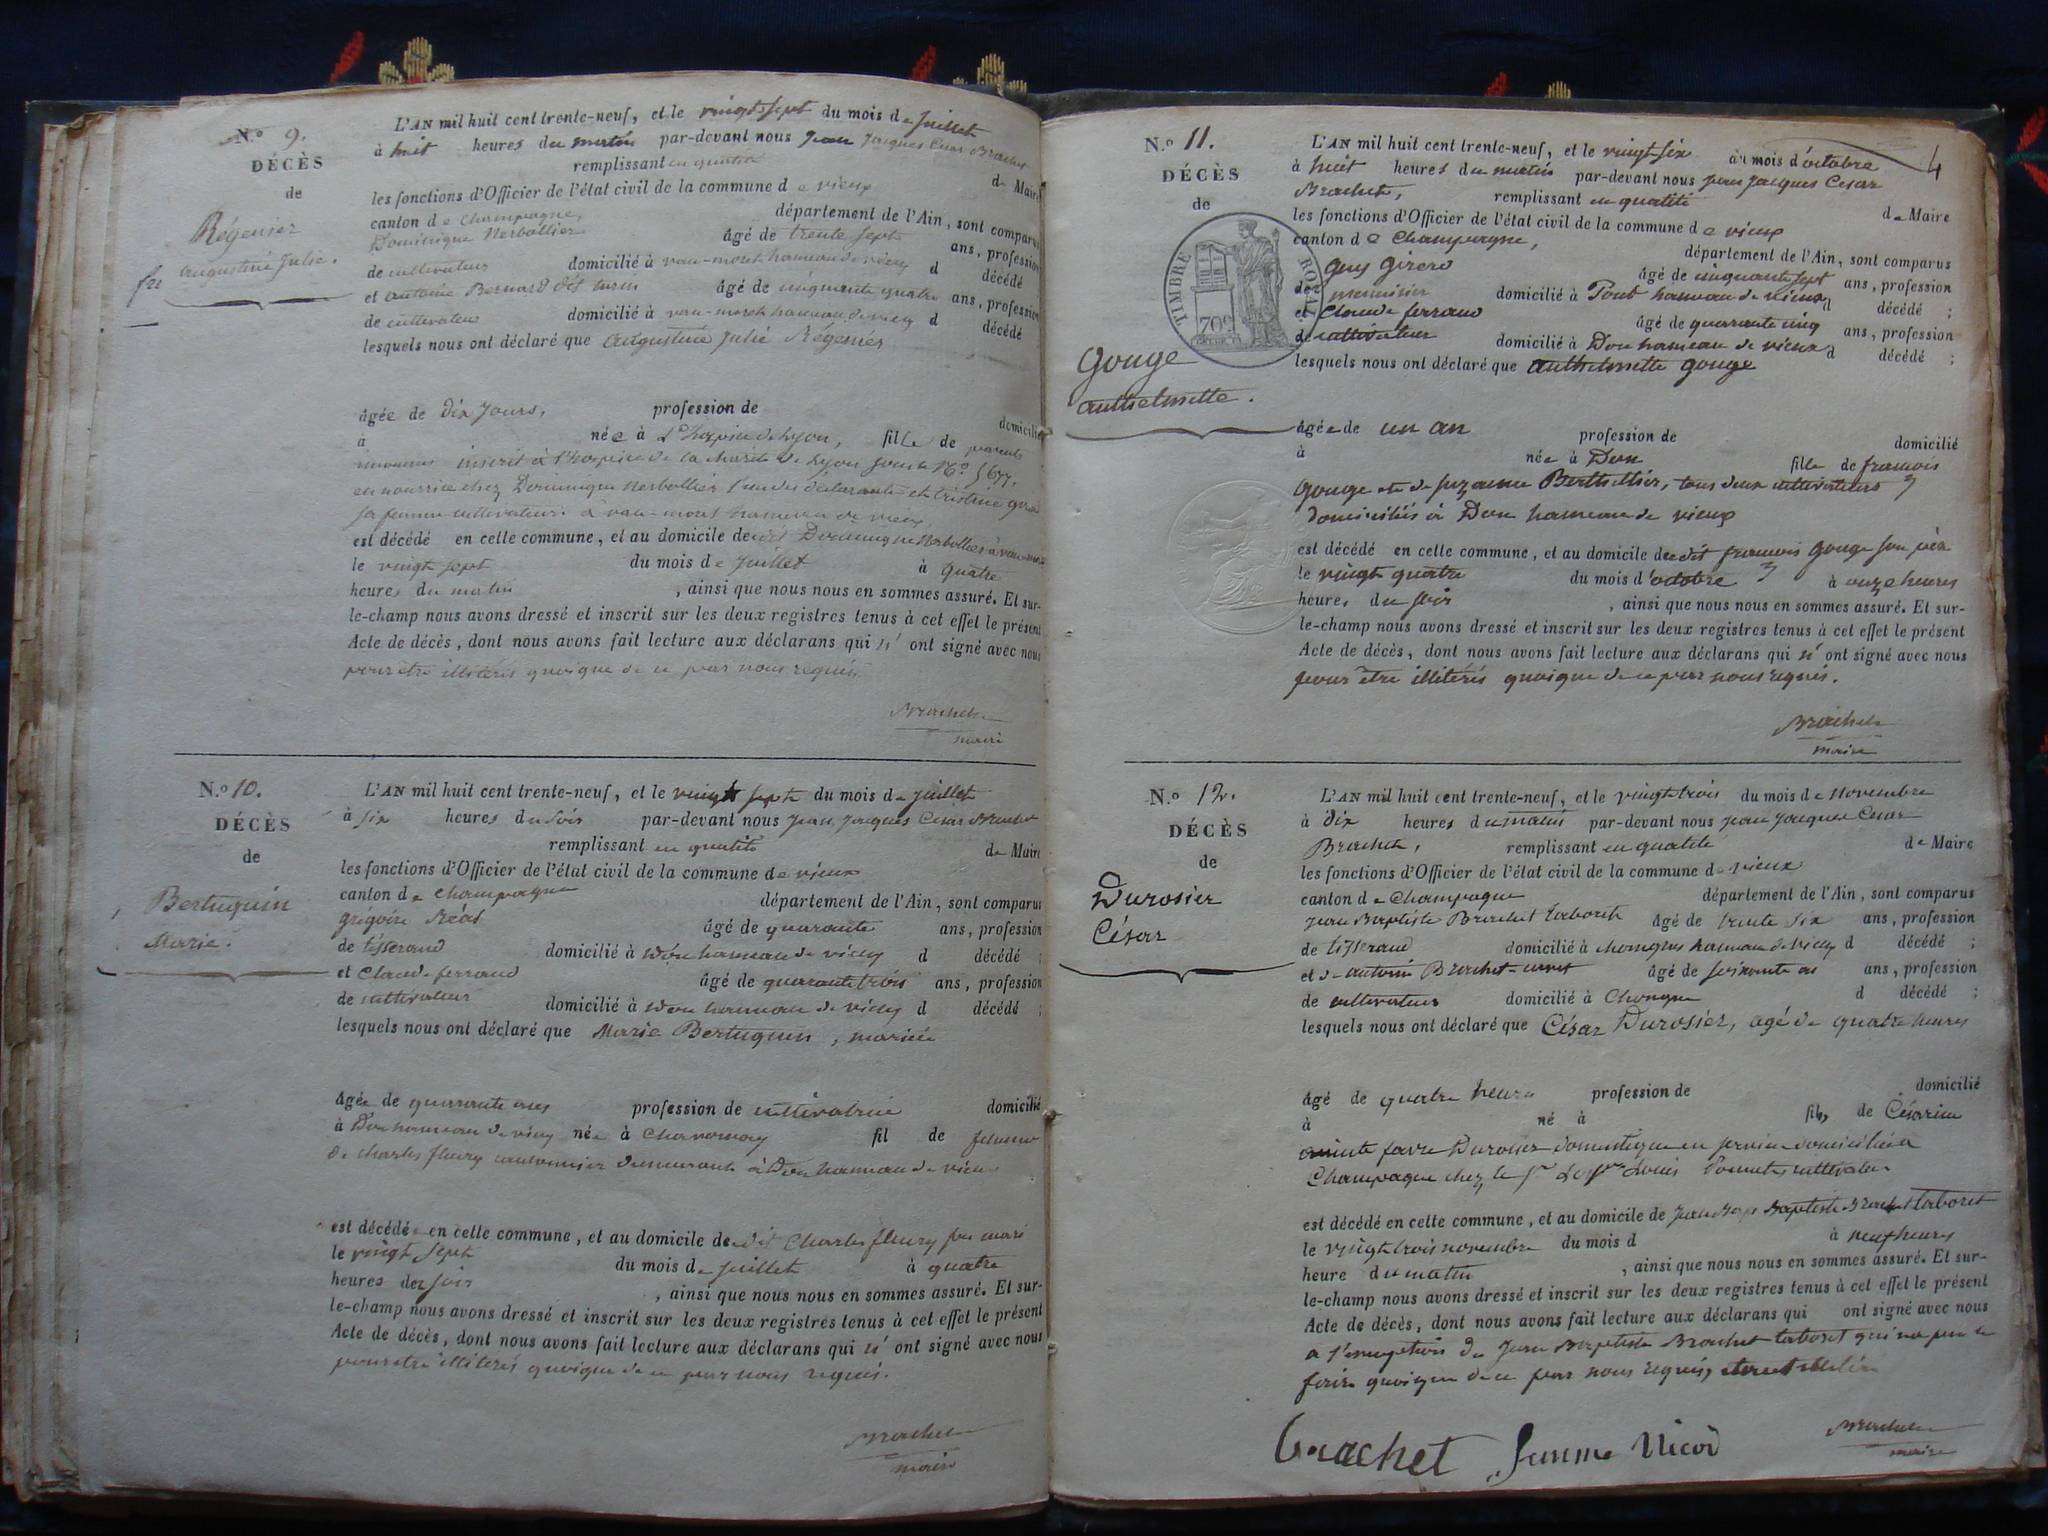 N.º 9.
DÉCÈS
de
Régenier
augustine Julie.
L'AN mil huit cent trente-neuf, et le vingt sept du mois de Juillet
à huit heures du matin par-devant nous Jean Jacques Cesar Brachet
remplissant en qualité de Maire
les fonctions d'Officier de l'état civil de la commune de vieux
canton de Champagne, département de l'Ain, sont comparus
Dominique Nerbollier âgé de trente sept ans, profession
de cultivateur domicilié à hameau de vieux d décédé
et antoine Bernard dit âgé de cinquante quatre ans, profession
de cultivateur domicilié à hameau de vieux d décédé
lesquels nous ont déclaré que augustine Julie Régenier
âgée de dix jours, profession de domicilié
à née à L'hospice de Lyon, fille de parents
inconnus inscrit à l'hospice de la charité de Lyon sous le Nº
en nourrice chez Dominique Nerbollier l'un des déclarants et
sa femme cultivateurs à hameau de vieux
est décédé en cette commune, et au domicile de dit Dominique Nerbollier à
le vingt sept du mois de Juillet à quatre
heures du matin, ainsi que nous nous en sommes assuré. Et sur-
le-champ nous avons dressé et inscrit sur les deux registres tenus à cet effet le présent
Acte de décès, dont nous avons fait lecture aux déclarans qui n'ont signé avec nous
pour être illiterés quoique de ce par nous requis
Brachet
maire
N.º 10.
DÉCÈS
de
Bertuquin
Marie.
L'AN mil huit cent trente-neuf, et le vingt sept du mois de Juillet
à six heures du soir par-devant nous Jean Jacques Cesar Brachet
remplissant en qualité de Maire
les fonctions d'Officier de l'état civil de la commune de vieux
canton de Champagne département de l'Ain, sont comparus
grégoire âgé de quarante ans, profession
de tisserand domicilié à hameau de vieux d décédé ;
et Claude ferrand âgé de quarante trois ans, profession
de cultivateur domicilié à hameau de vieux d décédé ;
lesquels nous ont déclaré que Marie Bertuquin, mariée
âgée de quarante ans profession de cultivatrice domicilié
à Don hameau de vieux née à Chavornay fil de femme
de Charles fleury cantonnier demeurant à Don hameau de vieux
est décédée en cette commune, et au domicile de dit Charles fleury son mari
le vingt sept du mois de Juillet à quatre
heures de soir, ainsi que nous nous en sommes assuré. Et sur-
le-champ nous avons dressé et inscrit sur les deux registres tenus à cet effet le présent
Acte de décès, dont nous avons fait lecture aux déclarans qui n'ont signé avec nous
pour etre illiterés quoique de ce par nous requis.
Brachet
maire
4
N.º 11.
DÉCÈS
de
TIMBRE ROYAL
70c
Gouge
anthelmette.
L'AN mil huit cent trente-neuf, et le vingt six du mois d'octobre
à huit heures du matin par-devant nous Jean Jacques Cesar
Brachet, remplissant en qualité de Maire
les fonctions d'Officier de l'état civil de la commune de vieux
canton de Champagne, département de l'Ain, sont comparus
Guy Girerd âgé de cinquante sept ans, profession
de menuisier domicilié à Pont hameau de vieux d décédé ;
et Claude ferrand âgé de quarante cinq ans, profession
de cultivateur domicilié à Don hameau de vieux d décédé ;
lesquels nous ont déclaré que anthelmette Gouge
âgée de un an profession de domicilié
à née à Don fille de francois
Gouge et de suzanne Berthellier, tous deux cultivateurs
domiciliés à Don hameau de vieux
est décédé en cette commune, et au domicile de dit francois Gouge son père
le vingt quatre du mois d'octobre à onze heures
heures du soir, ainsi que nous nous en sommes assuré. Et sur-
le-champ nous avons dressé et inscrit sur les deux registres tenus à cet effet le présent
Acte de décès, dont nous avons fait lecture aux déclarans qui n'ont signé avec nous
pour être illitérés quoique de ce par nous requis.
Brachet
maire
N.º 12.
DÉCÈS
de
Durosier
César
L'AN mil huit cent trente-neuf, et le vingt trois du mois de novembre
à dix heures du matin par-devant nous Jean Jacques Cesar
Brachet, remplissant en qualité de Maire
les fonctions d'Officier de l'état civil de la commune de vieux
canton de Champagne département de l'Ain, sont comparus
Jean Baptiste Brachet taboret âgé de trente six ans, profession
de tisserand domicilié à hameau de vieux d décédé ;
et antoine Brachet âgé de soixante ans, profession
de cultivateur domicilié à d décédé ;
lesquels nous ont déclaré que César Durosier, agé de quatre heures
âgé de quatre heures profession de domicilié
à né à fils de Césarine
Durosier domestique en service domiciliée à
Champagne chez le Sr Louis cultivateur
est décédé en cette commune, et au domicile de Jean Baptiste Brachet taboret
le vingt trois novembre du mois d à neuf heures
heure du matin, ainsi que nous nous en sommes assuré. Et sur-
le-champ nous avons dressé et inscrit sur les deux registres tenus à cet effet le présent
Acte de décès, dont nous avons fait lecture aux déclarans qui ont signé avec nous
a l'exception de Jean Baptiste Brachet taboret qui n'a pu le
faire quoique de ce par nous requis,
Brachet femme Nicod
Brachet
maire